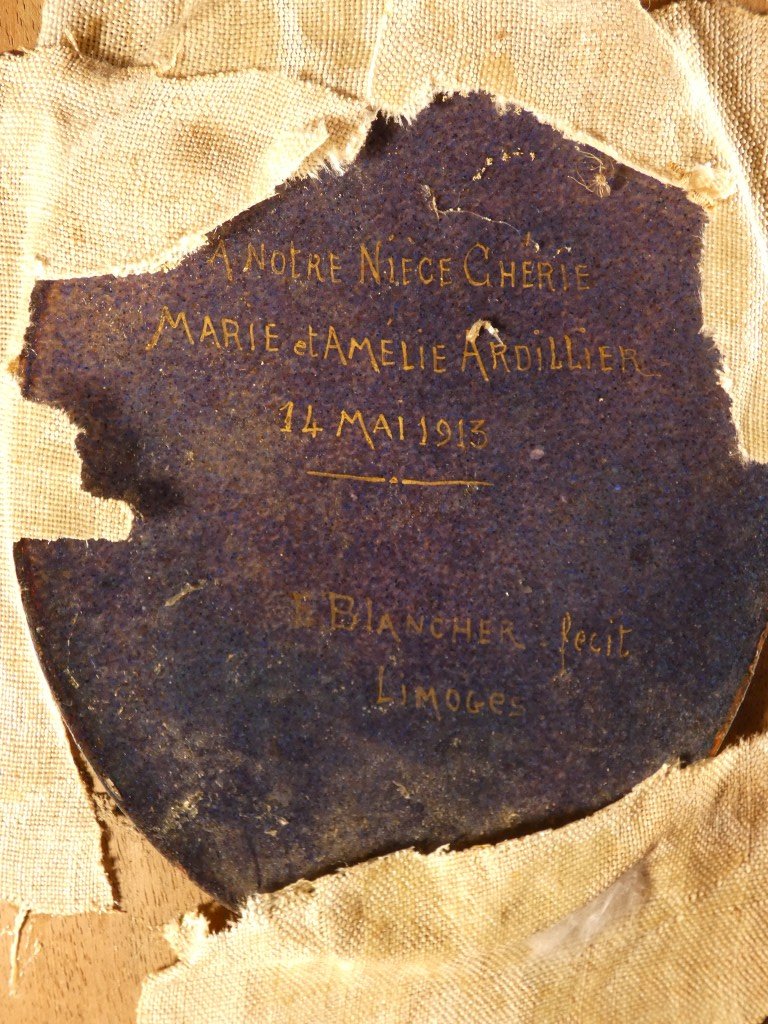 A NOTRE NIÈCE CHÉRIE
MARIE et AMÉLIE ARDILLIER
14 MAI 1913
E BLANCHER fecit
LIMOGES